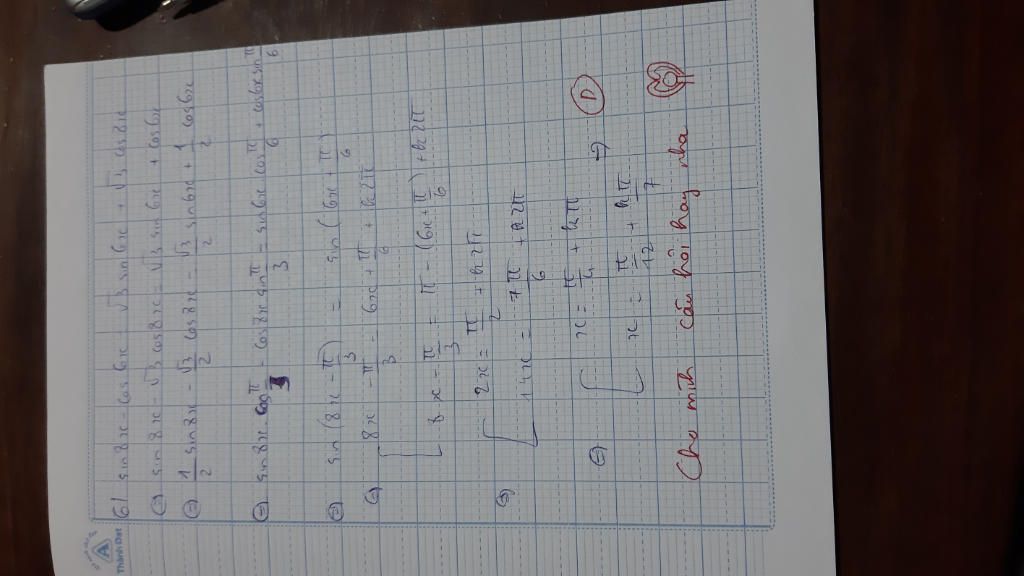 6/ sin8x - cos6x = √3 sin6x + √3 cos8x
⇔ sin8x - √3 cos8x = √3 sin6x + cos6x
⇔ 1/2 sin8x - √3/2 cos8x = √3/2 sin6x + 1/2 cos6x
⇔ sin8x cos π/3 - cos8x sin π/3 = sin6x cos π/6 + cos6x sin π/6
⇔ sin(8x - π/3) = sin(6x + π/6)
⇔ [ 8x - π/3 = 6x + π/6 + k2π
8x - π/3 = π - (6x + π/6) + k2π
⇔ [ 2x = π/2 + k2π
14x = 7π/6 + k2π
⇔ [ x = π/4 + kπ ⇒ D
x = π/12 + kπ/7
Cho mình câu hỏi hay nha
A
Thành Đạt